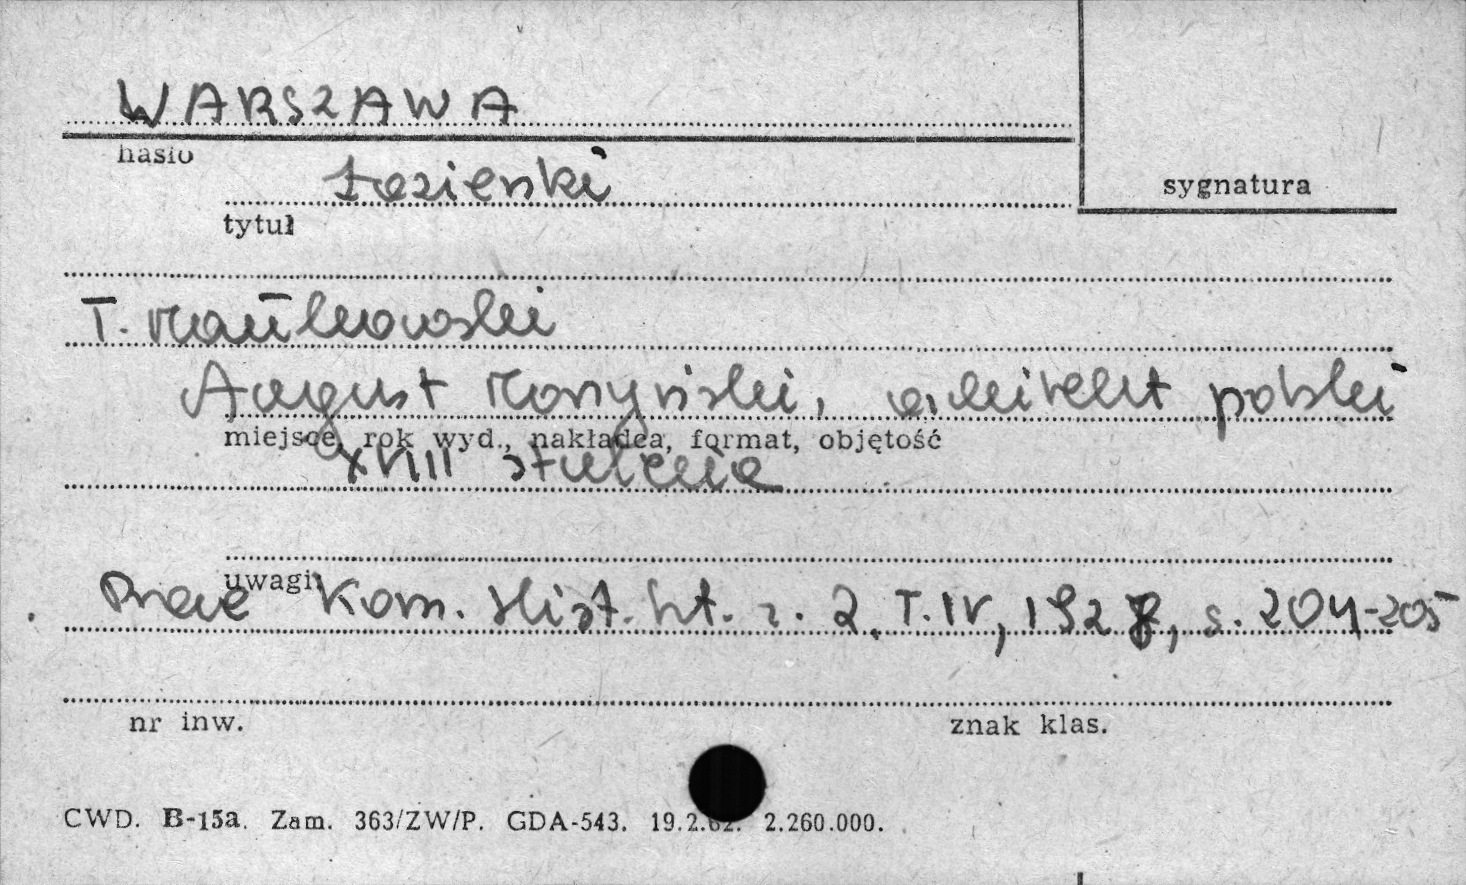 WARSZAWA
hasło
Łazienki
sygnatura
tytuł
T. Mańkowski
August Moszyński, architekt polski
miejsce, rok wyd., nakładca, format, objętość
XVIII stulecia
uwagi:
Prace Kom. Hist. szt. z. 2. T. IV, 1928, s. 204-205
nr inw.
znak klas.
CWD. B-15a. Zam. 363/ZW/P. GDA-543. 19.2.62. 2.260.000.